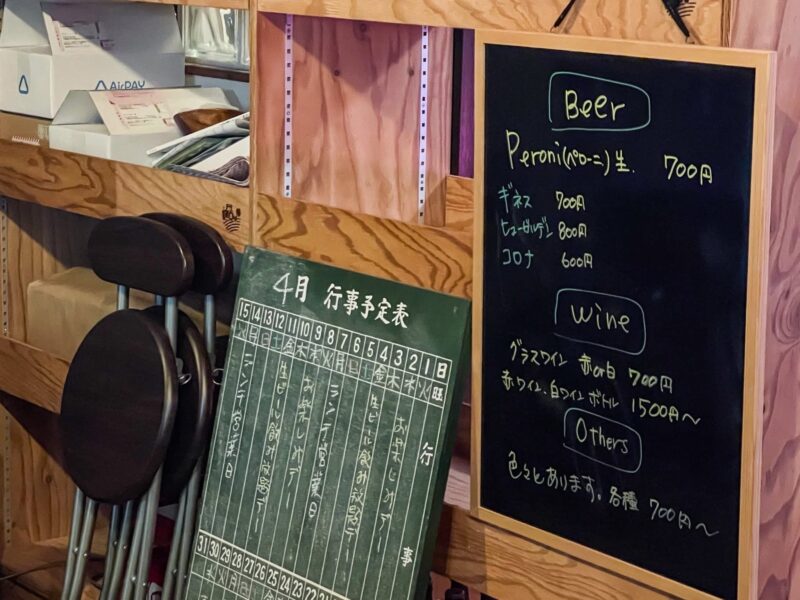 AirPAY
Beer
Peroni(ペローニ)生. 700円
ギネス 700円
ヒューガルデン 800円
コロナ 600円
Wine
グラスワイン 赤or白 700円
赤ワイン、白ワイン ボトル 1500円〜
Others
色々とあります。各種 700円〜
4月 行事予定表
15 14 13 12 11 10 9 8 7 6 5 4 3 2 1 日
火 月 日 土 金 木 水 火 月 日 土 金 木 水 火 曜
行事
お好
生ビール飲み放題デー
ランチ営業日
生ビール飲み放題デー
ランチ営業日
31 30 29 28 27 26 25 24 23 22